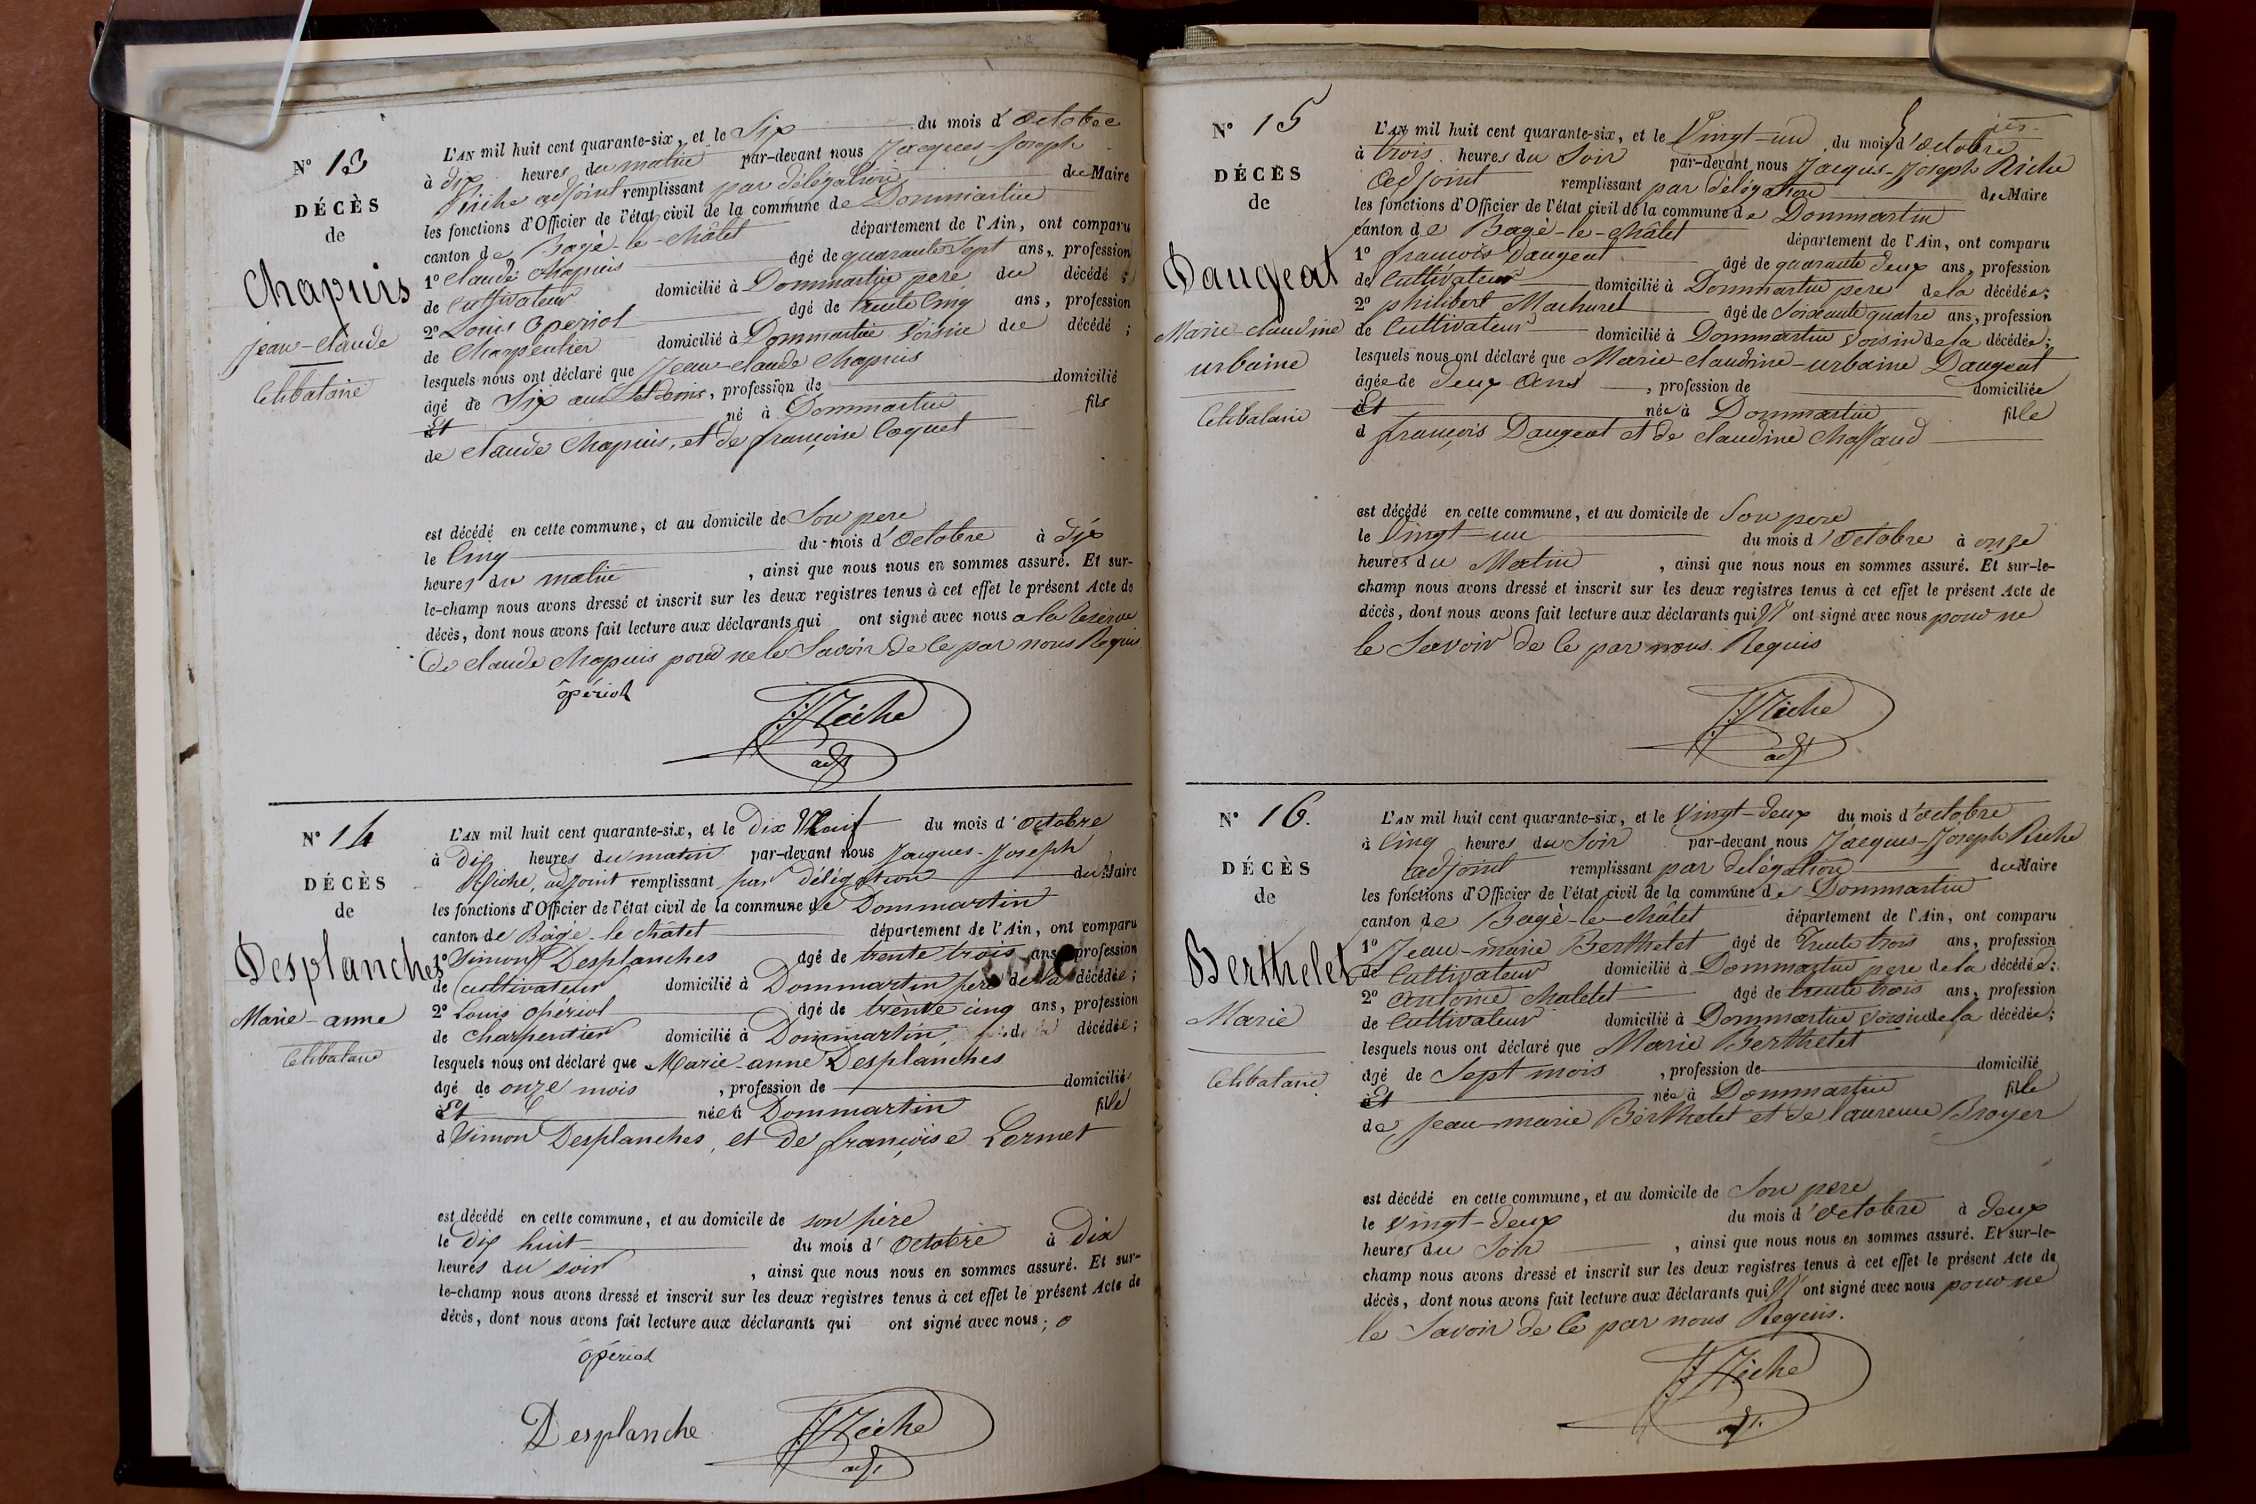 N° 13
DÉCÈS
de
Chapuis
Jean-Claude
Celibataire
L'AN mil huit cent quarante-six, et le Six du mois d'Octobre
à dix heures du matin par-devant nous Jacques-Joseph
Riche adjoint remplissant par délégation du Maire
les fonctions d'Officier de l'état civil de la commune de Dommartin
canton de Bagé-le-châtel département de l'Ain, ont comparu
1° Claude Chapuis âgé de quarante Sept ans, profession
de Cultivateur domicilié à Dommartin pere du décédé;
2° Louis Opériol âgé de trente Cinq ans, profession
de Charpentier domicilié à Dommartin Voisin du décédé;
lesquels nous ont déclaré que Jean-Claude Chapuis
âgé de Six ans et demi, profession de domicilié
à Et né à Dommartin fils
de Claude Chapuis, et de françoise Coquet
est décédé en cette commune, et au domicile de Son pere
le Cinq du mois d'Octobre à dix
heures du matin, ainsi que nous nous en sommes assuré. Et sur-
le-champ nous avons dressé et inscrit sur les deux registres tenus à cet effet le présent Acte de
décès, dont nous avons fait lecture aux déclarants qui ont signé avec nous a la Reserve
De Claude Chapuis pour ne le Savoir de ce par nous Requis
Opériol
JJ Riche
adj
N° 14
DÉCÈS
de
Desplanches
Marie-anne
Celibataire
L'AN mil huit cent quarante-six, et le Dix Neuf du mois d'Octobre
à Dix heures du matin par-devant nous Jacques-Joseph
Riche, adjoint remplissant par délégation du Maire
les fonctions d'Officier de l'état civil de la commune de Dommartin
canton de Bâgé-le châtel département de l'Ain, ont comparu
1° Simon Desplanches âgé de trente trois ans, profession
de Cultivateur domicilié à Dommartin père de la décédée;
2° Louis Opériol âgé de trente cinq ans, profession
de charpentier domicilié à Dommartin, de la décédée;
lesquels nous ont déclaré que Marie-anne Desplanches
âgé de onze mois, profession de domicilié
à Et née à Dommartin fille
d Simon Desplanches, et de françoise Lormet
est décédé en cette commune, et au domicile de son père
le dix huit du mois d'Octobre à Dix
heures du soir, ainsi que nous nous en sommes assuré. Et sur-
le-champ nous avons dressé et inscrit sur les deux registres tenus à cet effet le présent Acte de
décès, dont nous avons fait lecture aux déclarants qui ont signé avec nous;
Opériol
Desplanche
JJ Riche
adj
N° 15
DÉCÈS
de
Daugeat
Marie-claudine
urbaine
Celibataire
L'AN mil huit cent quarante-six, et le Vingt-un du mois d'Octobre
à trois heures du Soir par-devant nous Jacques-Joseph Riche
adjoint remplissant par délégation du Maire
les fonctions d'Officier de l'état civil de la commune de Dommartin
canton de Bagé-le-châtel département de l'Ain, ont comparu
1° françois Daugeat âgé de quarante deux ans, profession
de Cultivateur domicilié à Dommartin pere de la décédée;
2° philibert Machuret âgé de Soixante quatre ans, profession
de Cultivateur domicilié à Dommartin Voisin de la décédée;
lesquels nous ont déclaré que Marie-claudine-urbaine Daugeat
âgée de deux ans, profession de domiciliée
à Et née à Dommartin fille
d françois Daugeat et de claudine Chaffaud
est décédé en cette commune, et au domicile de Son pere
le Vingt-un du mois d'Octobre à onze
heures du Matin, ainsi que nous nous en sommes assuré. Et sur-le-
champ nous avons dressé et inscrit sur les deux registres tenus à cet effet le présent Acte de
décès, dont nous avons fait lecture aux déclarants qui N' ont signé avec nous pour ne
le Savoir de ce par nous Requis
JJ Riche
adj
N° 16.
DÉCÈS
de
Berthelet
Marie
Celibataire
L'AN mil huit cent quarante-six, et le Vingt-deux du mois d'octobre
à Cinq heures du Soir par-devant nous Jacques-Joseph Riche
adjoint remplissant par délégation du Maire
les fonctions d'Officier de l'état civil de la commune de Dommartin
canton de Bagé-le-châtel département de l'Ain, ont comparu
1° Jean-marie Berthelet âgé de Trente trois ans, profession
de Cultivateur domicilié à Dommartin pere de la décédée;
2° antoine Chaletet âgé de trente trois ans, profession
de Cultivateur domicilié à Dommartin Voisin de la décédée;
lesquels nous ont déclaré que Marie Berthelet
âgé de Sept mois, profession de domicilié
à Et née à Dommartin fille
de Jean-marie Berthelet et de laurence Broyer
est décédé en cette commune, et au domicile de Son pere
le Vingt-deux du mois d'Octobre à deux
heures du Soir, ainsi que nous nous en sommes assuré. Et sur-le-
champ nous avons dressé et inscrit sur les deux registres tenus à cet effet le présent Acte de
décès, dont nous avons fait lecture aux déclarants qui N' ont signé avec nous pour ne
le Savoir de ce par nous Requis.
JJ Riche
adj.